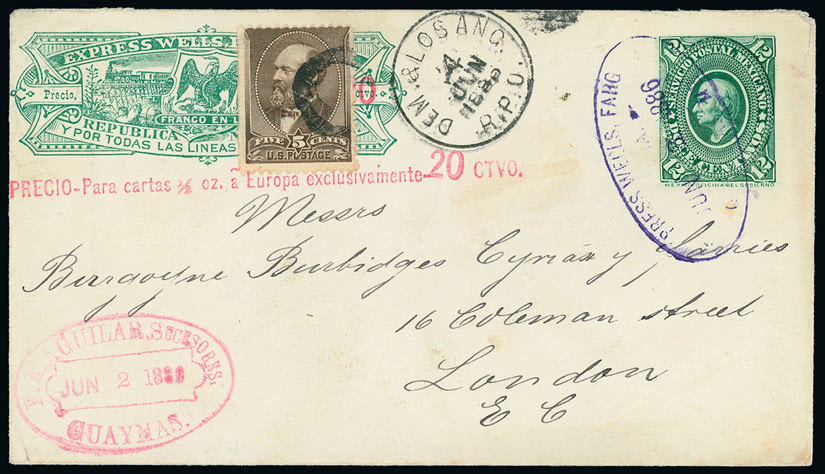 EXPRESS WELLS,
Precio,
CTVO.
FRANCO EN
REPUBLICA
Y POR TODAS LAS LINEAS
FIVE 5 CENTS
U.S. POSTAGE
DEM. & LOS ANG.
4
JUN
R.P.O.
PRESS WELLS, FARG
JUN
886
12 12
SERVICIO POSTAL MEXICANO
12 12
MEXICO OFICINA DEL GOBIERNO
PRECIO-Para cartas ½ oz. á Europa exclusivamente 20 CTVO.
Messrs
Burgoyne Burbidges Cyriax y Farries
16 Coleman street
London
E C
AGUILAR, SUCESORES,
JUN 2 1886
GUAYMAS.